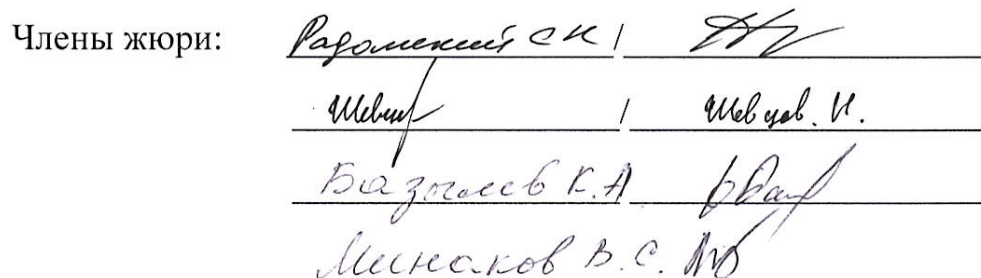 Члены жюри: Радомский С К /
/ Шевцов. И.
Базылев К.А
Минаков В. С.